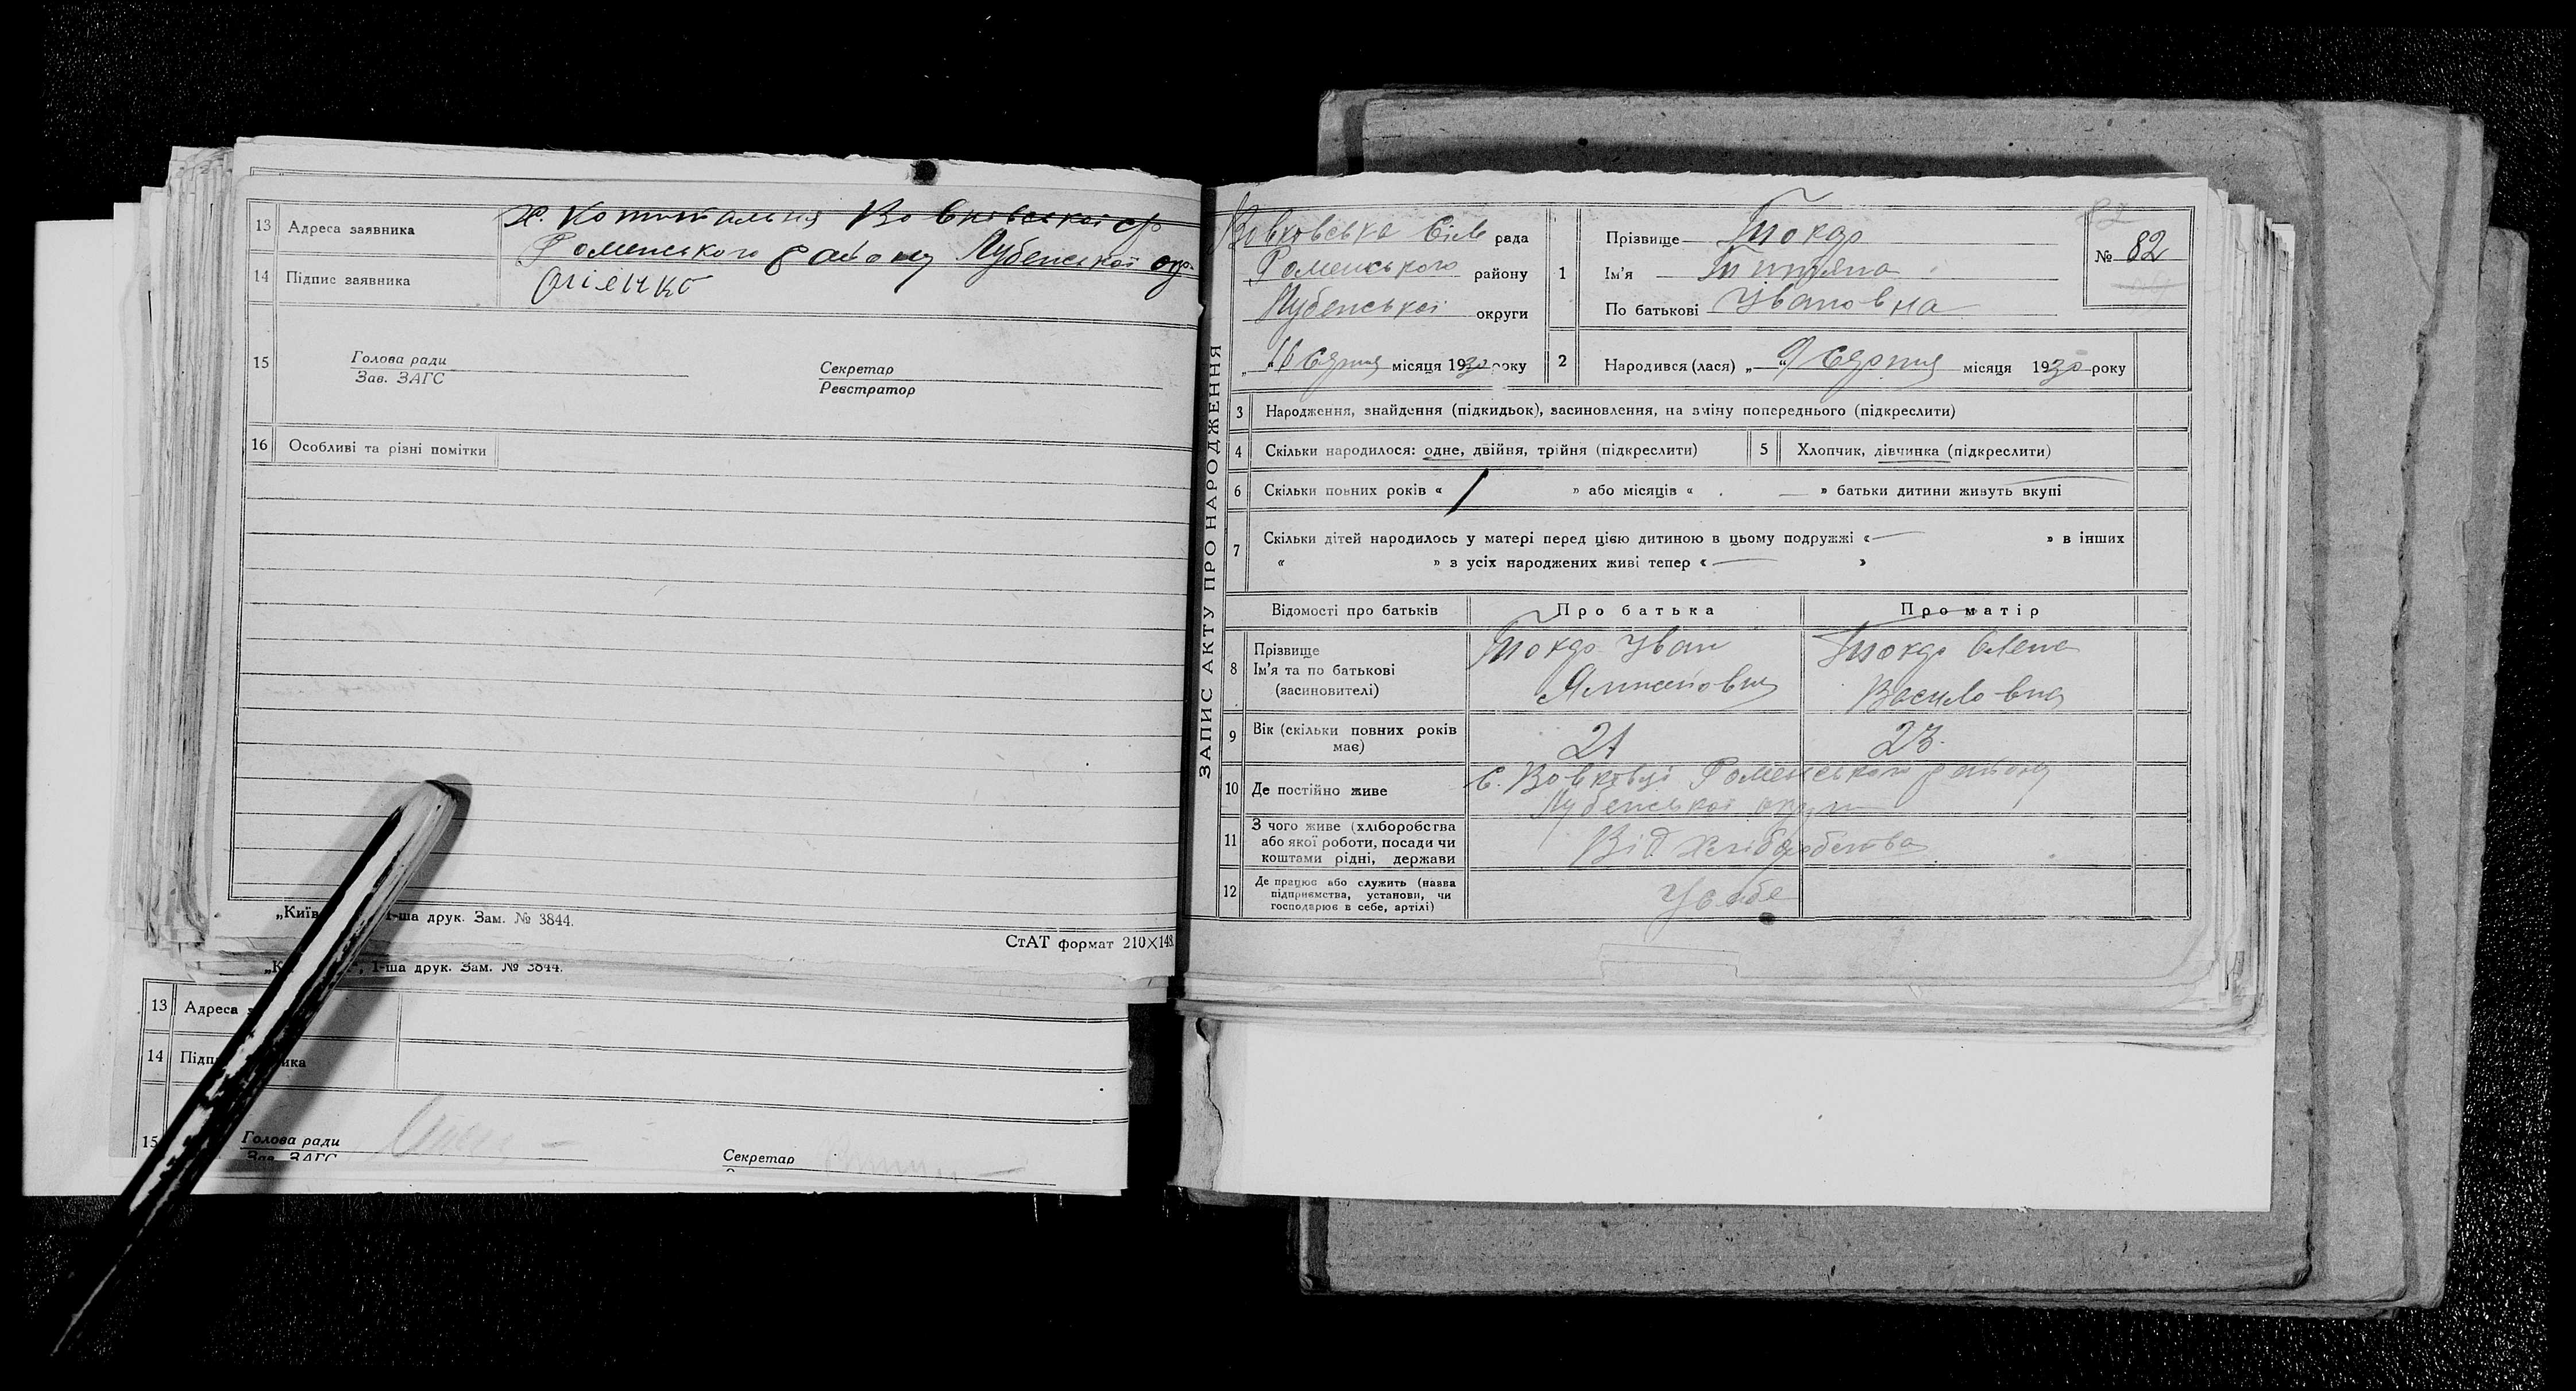 13 Адреса заявника
Х. Коптальня Вовковської с/р
Роменського району Лубенської окр.
14 Підпис заявника
15 Голова ради
Зав. ЗАГС
Секретар
Реєстратор
16 Особливі та різні помітки
„Київ 1-ша друк. Зам. № 3844.
СтАТ формат 210×148.
1-ша друк. Зам. № 3844.
13 Адреса
14
15 Голова ради
Зав. ЗАГС
Секретар
ЗАПИС АКТУ ПРО НАРОДЖЕННЯ
Вовковська Сіль рада
Роменського району
Лубенської округи
„16 Серпня місяця 1930 року
82
№ 82
1 Прізвище Токар
Ім'я Тетяна
По батькові Ивановна
2 Народився (лася) „9 Серпня місяця 1930 року
3 Народження, знайдення (підкидьок), засиновлення, на зміну попереднього (підкреслити)
4 Скільки народилося: одне, двійня, трійня (підкреслити) 5 Хлопчик, дівчинка (підкреслити)
6 Скільки повних років « 1 » або місяців « — » батьки дитини живуть вкупі
7 Скільки дітей народилось у матері перед цією дитиною в цьому подружжі « — » в інших
« » з усіх народжених живі тепер « — »
Відомості про батьків Про батька Про матір
8 Прізвище
Ім'я та по батькові
(засновителі)
Токар Иван
Токар Олена
Василовна
9 Вік (скільки повних років
має)
21 23
10 Де постійно живе
С. Вовковці Роменського району
Лубенської округи
11 З чого живе (хліборобства
або якої роботи, посади чи
коштами рідні, держави
Від хліборобства
12 Де працює або служить (назва
підприємства, установи, чи
господарює в себе, артілі)
У себе